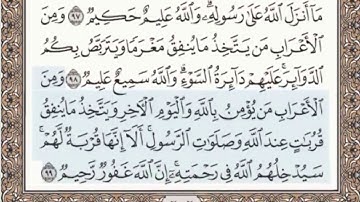 مَا أَنزَلَ اللَّهُ عَلَىٰ رَسُولِهِ ۗ وَاللَّهُ عَلِيمٌ حَكِيمٌ ۝٩٧ وَمِنَ
الْأَعْرَابِ مَن يَتَّخِذُ مَا يُنفِقُ مَغْرَمًا وَيَتَرَبَّصُ بِكُمُ
الدَّوَائِرَ ۚ عَلَيْهِمْ دَائِرَةُ السَّوْءِ ۗ وَاللَّهُ سَمِيعٌ عَلِيمٌ ۝٩٨ وَمِنَ
الْأَعْرَابِ مَن يُؤْمِنُ بِاللَّهِ وَالْيَوْمِ الْآخِرِ وَيَتَّخِذُ مَا يُنفِقُ
قُرُبَاتٍ عِندَ اللَّهِ وَصَلَوَاتِ الرَّسُولِ ۚ أَلَا إِنَّهَا قُرْبَةٌ لَّهُمْ ۚ
سَيُدْخِلُهُمُ اللَّهُ فِي رَحْمَتِهِ ۗ إِنَّ اللَّهَ غَفُورٌ رَّحِيمٌ ۝٩٩